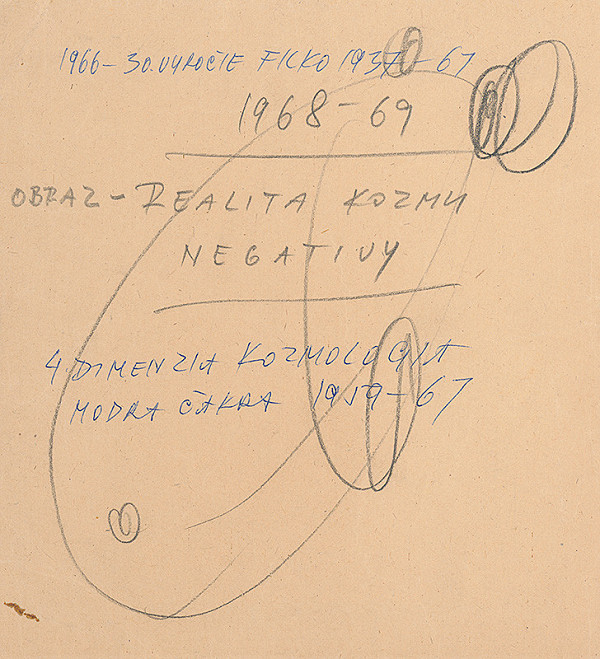 1966-30.VÝROČIE FILKO 1937-67
1968-69
OBRAZ-REALITA KOZMU
NEGATIVY
4.DIMENZIA KOZMOLOGIA
MODRA ČAKRA 1959-67